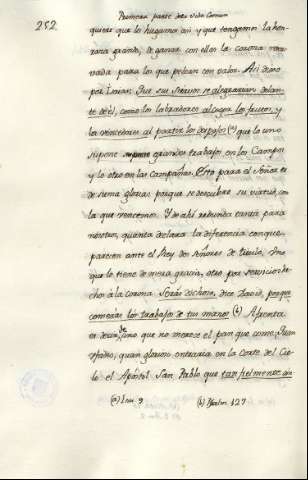 252
Primera parte de la Vida Comun
quiere que lo hagamos asi y que tengamos la hon-
rara grande, de ganar con ellos la corona reser-
vada para los que pelean con valor. Asi dixo
por Isaias: Que sus siervos se alegrarian delan-
te de èl, como los labradores al coger los frutos, y
los vencedores al partir los despojos (a) que lo uno
supone grandes trabajos en los Campos
y lo otro en las Campañas. Esto para el Señor es
de suma gloria; porque se descubre su virtud, con
la que vencemos. Y de ahi redunda tanta para
nosotros, quanta declara la diferencia con que
parecen ante el Rey dos Señores de titulo, Uno
que lo tiene de mera gracia, otro por servicios he-
cho à la corona. Seràs dichoso, dice David, porque
comeràs los trabajos de tus manos (b) Afrenta
es decir de uno que no merece el pan que come. Juan
quan glorioso entraria en la Corte del Cie-
lo el Apòstol San Pablo que tan fielmente sir-
(a) Isai. 9 (b) Psalm. 127